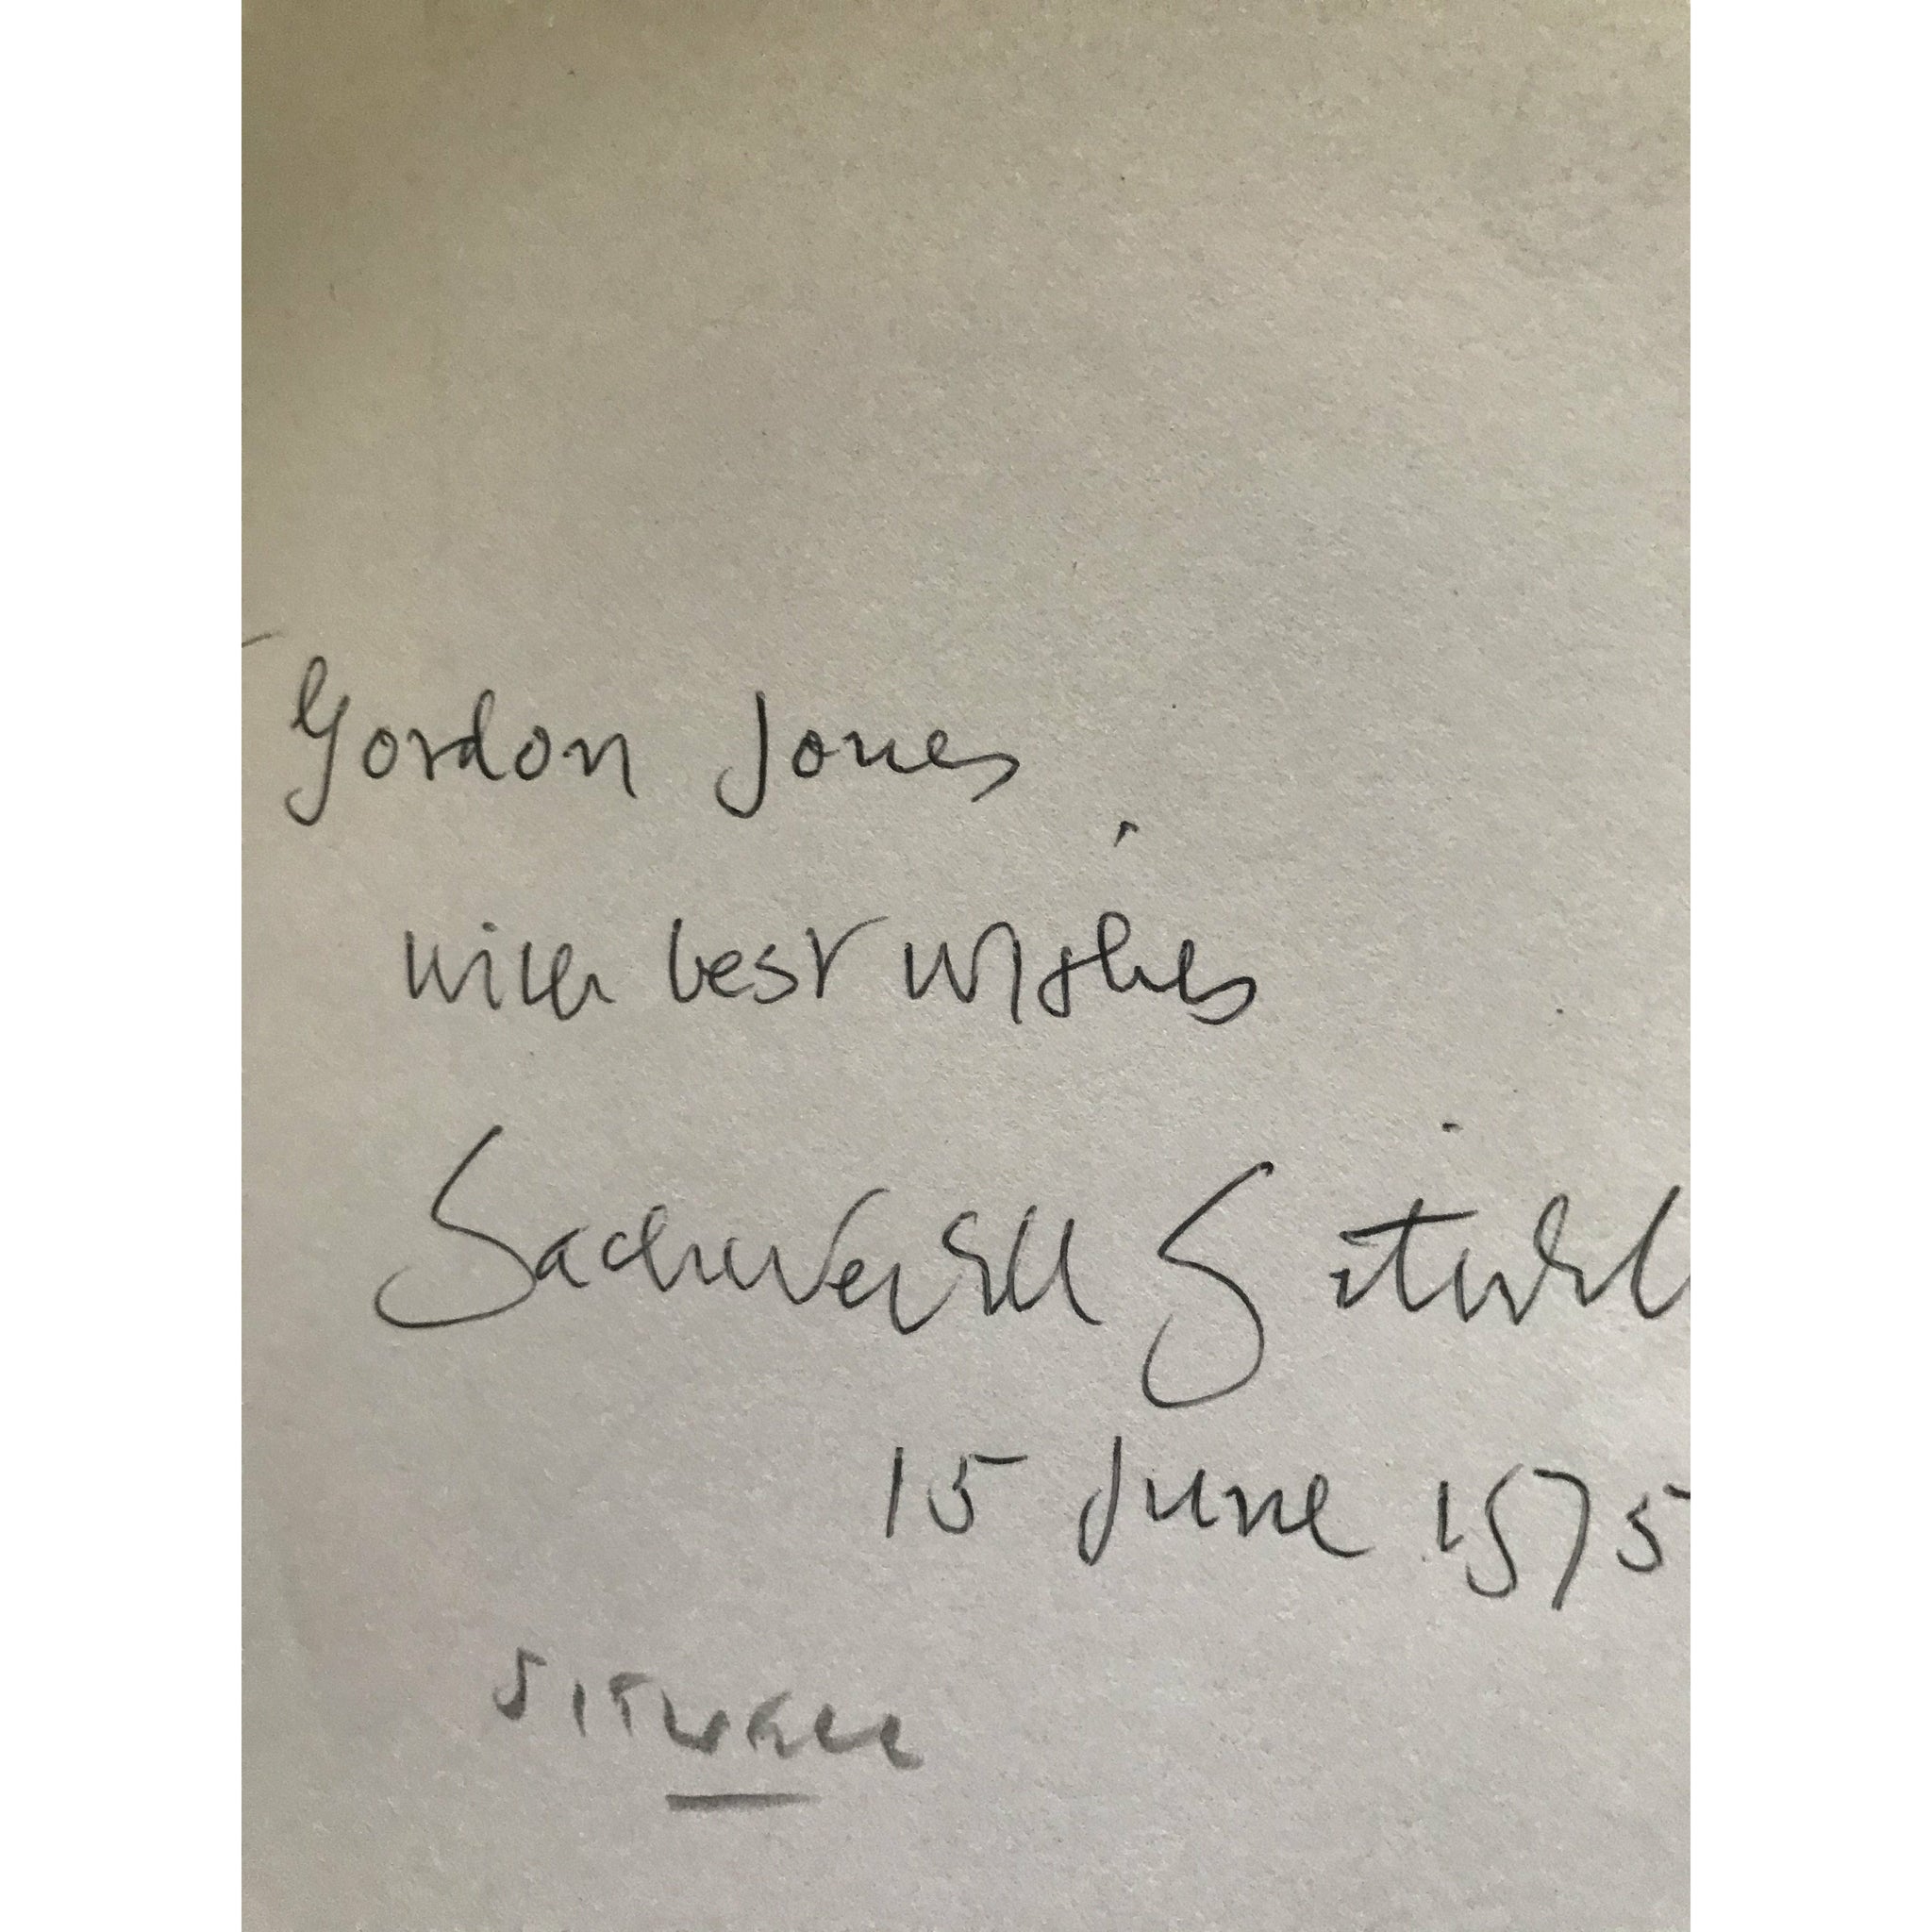 Gordon Jones
with best wishes
Sacheverell Sitwell
15 June 1975
SITWELL